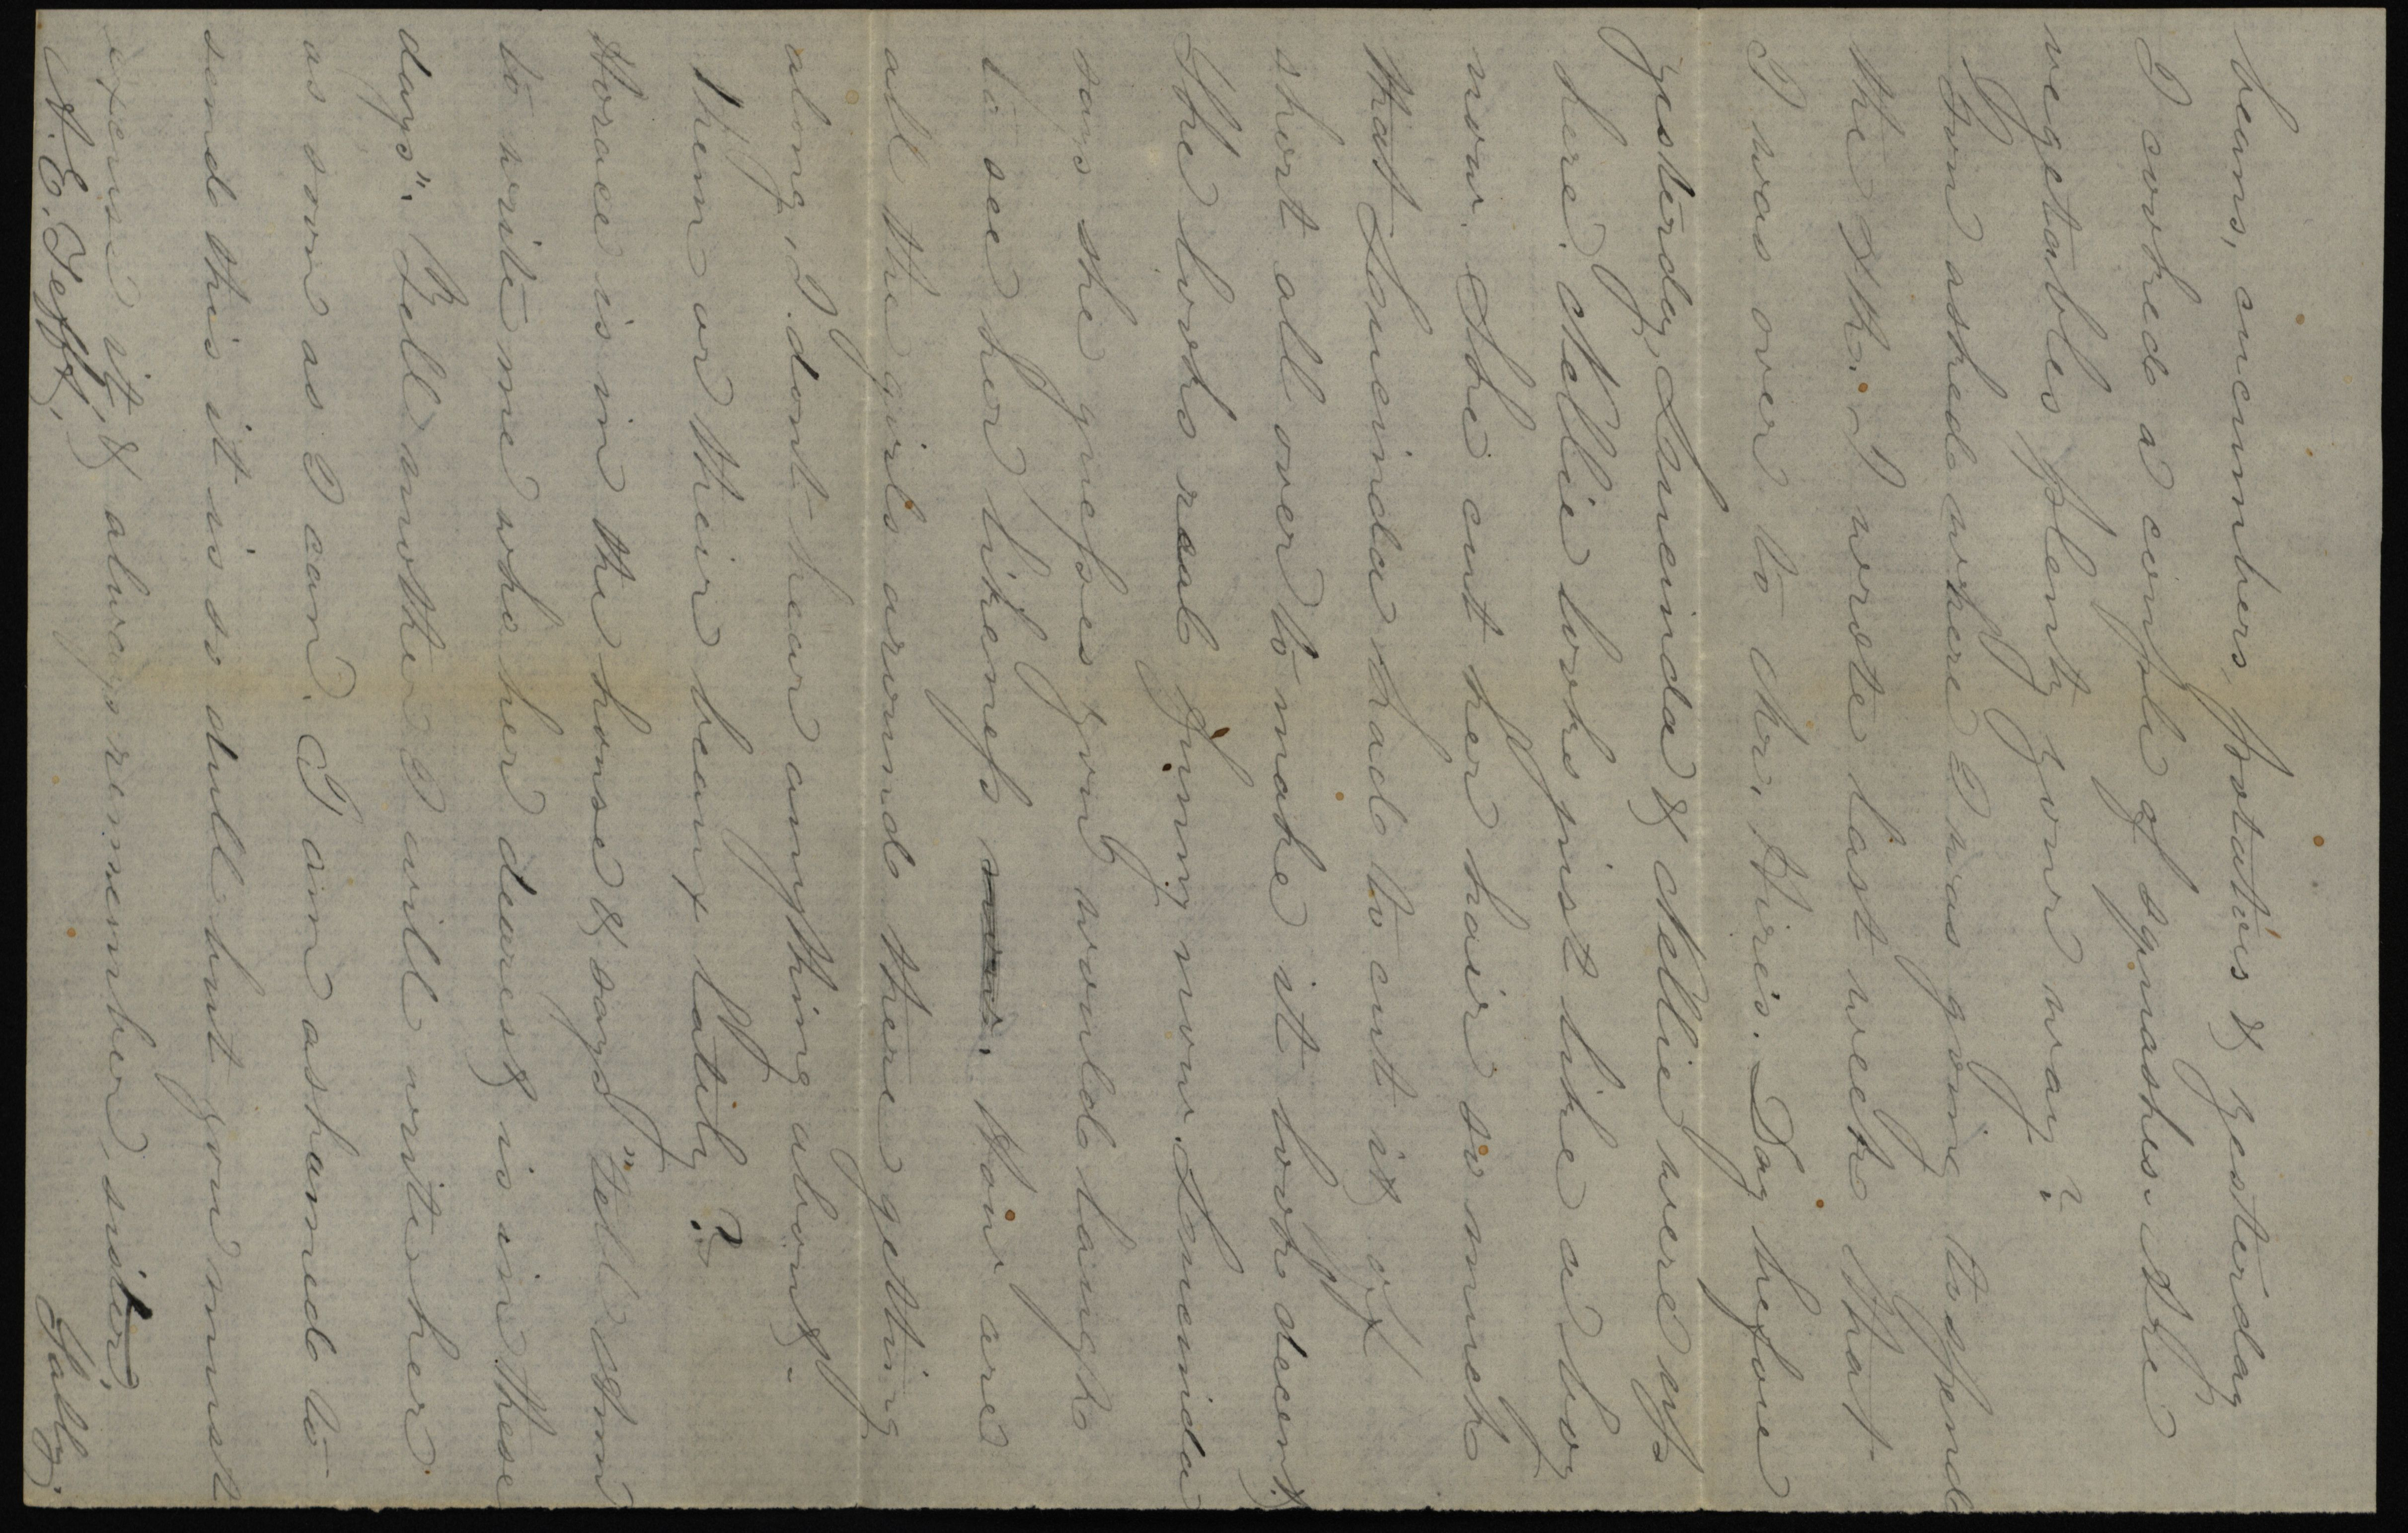 beans, cucumbers, potatoes & yesterday
I cooked a couple of squashes. Are
vegetables plenty your way?
You asked where I was going to spend
the 4th. I wrote last week that
I was over to Mr. Hire's. Day before
yesterday, Loucinda & Nellie were up
here. Nellie looks just like a boy
now. She cut her hair so much
that Loucinda had to cut it off
short all over to make it look decent,
She looks real funny now. Loucinda
says she guesses you would laugh
to see her likeness now. How are
all the girls around there getting
along, I dont hear anything about
them or their beaux lately?
Horace is in the house & says "tell Ann
to write me who her dearest is in these
days". Tell mother I will write her
as soon as I can. I am ashamed to
send this it is so dull but you must
excuse it, & always remember, sister,
A. E. Tefft, Sally.